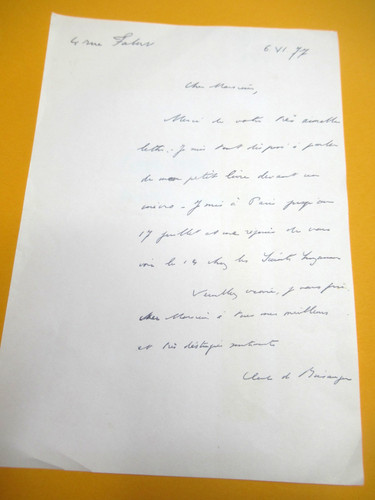 4 rue Fabert
6 VI 77
Cher Monsieur,
Merci de votre très aimable
lettre. Je suis tout disposé à parler
de mon petit livre devant un
micro. Je suis à Paris jusqu'au
17 juillet et me réjouis de vous
voir le 14 chez les Sainte
Veuillez croire, je vous prie,
cher Monsieur à tous mes meilleurs
et très distingués sentiments
Claude de Boisanger